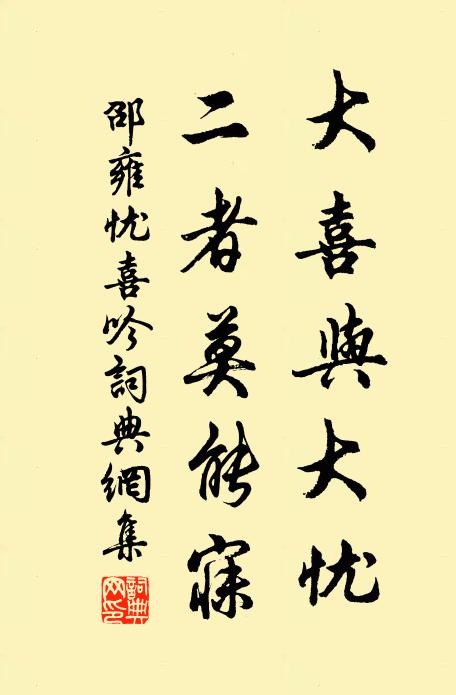 大喜與大忧
二者莫能寐
邵雍忧喜吟詞典網集
詞典網印